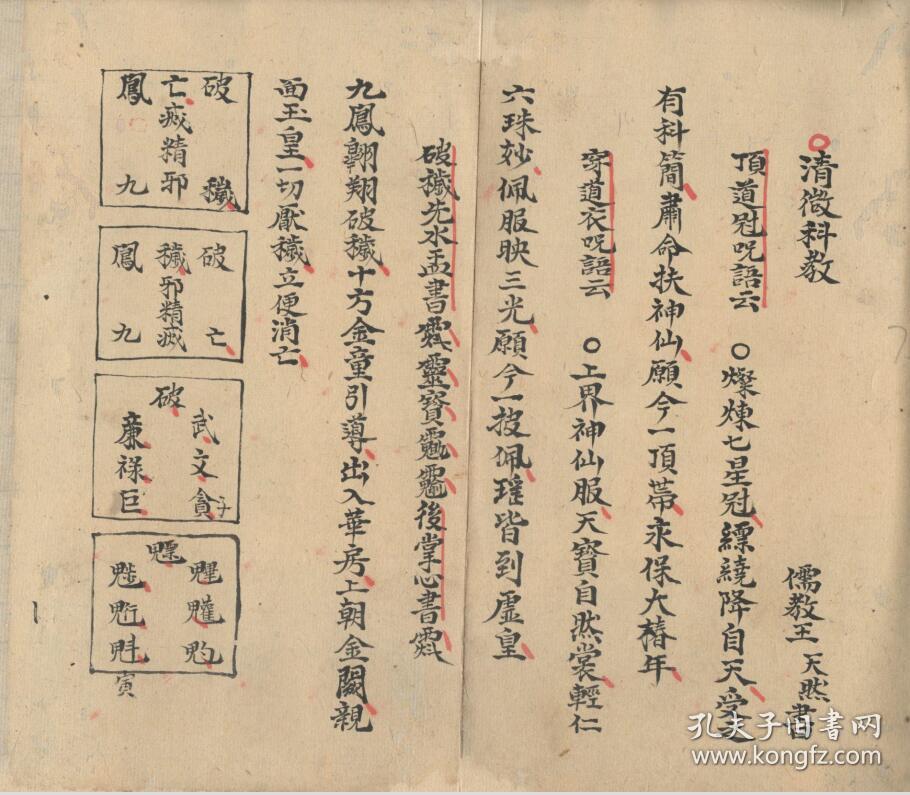 清微科教
儒教王天然書
頂道冠呪語云 〇燦煉七星冠縹繞降自天受之
有科簡肅命扶神仙願今一頂帶永保大椿年
穿道衣呪語云 〇上界神仙服天寳自然裳輕仁
六珠妙佩服映三光願今一披佩瑤皆到虛皇
破穢先水盂書靈寳後掌心書
九鳳翱翔破穢十方金童引導出入華房上朝金闕親
面玉皇一切厭穢立便消亡
破 穢
亡痣精邪
鳳 九
破 亡
穢邪精痣
鳳 九
武文貪
破
廉祿巨
寅
孔夫子旧書网
www.kongfz.com